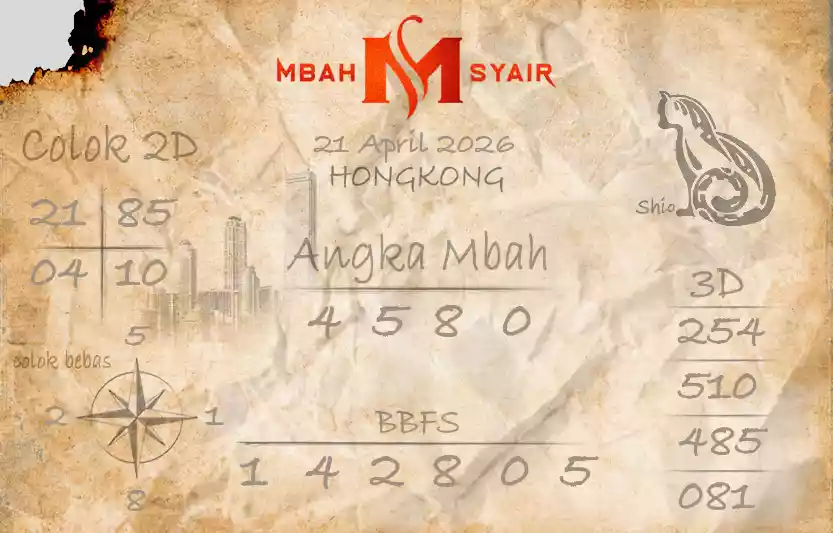 MBAH M SYAIR
21 April 2026
HONGKONG
Colok 2D
21 85
04 10
Angka Mbah
4 5 8 0
Shio
3D
254
510
485
081
colok bebas
5
2 1
8
BBFS
1 4 2 8 0 5